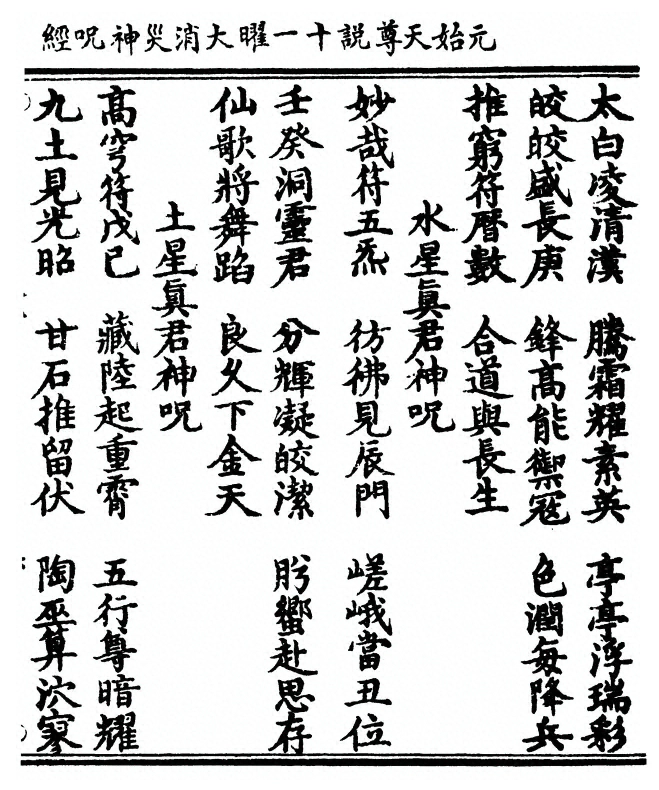 元始天尊說十一曜大消災神呪經
太白凌清漢　騰霜耀素英　亭亭浮瑞彩
皎皎盛長庚　鋒高能禦冦　色潤每降兵
推窮符曆數　合道與長生
水星眞君神呪
妙哉符五炁　彷彿見辰門　嵯峨當丑位
壬癸洞靈君　分輝凝皎潔　肹蠁赴思存
仙歌將舞蹈　良久下金天
土星眞君神呪
高穹符戊己　藏陸起重霄　五行尊暗耀
九土見光昭　甘石推留伏　陶巫算泬寥